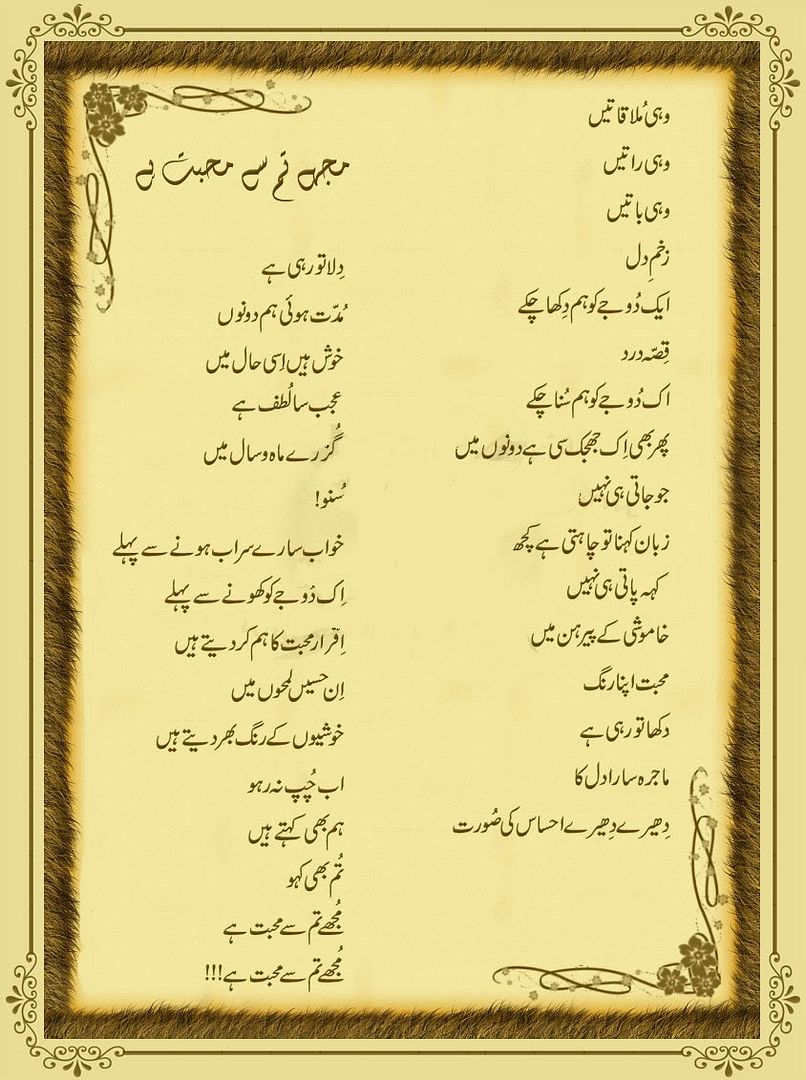 مجھے تم سے محبت ہے
وہی مُلاقاتیں
وہی راتیں
وہی باتیں
زخمِ دل
ایک دُوجے کو ہم دِکھا چکے
قِصّہ درد
اک دُوجے کو ہم سُنا چکے
پھر بھی اِک جھجک سی ہے دونوں میں
جو جاتی ہی نہیں
زبان کہنا تو چاہتی ہے کچھ
کہہ پاتی ہی نہیں
خاموشی کے پیرہن میں
محبت اپنا رنگ
دکھا تو رہی ہے
ماجرہ سارا دل کا
دِھیرے دِھیرے احساس کی صُورت
دِلا تو رہی ہے
مُدّت ہوئی ہم دونوں
خوش ہیں اِسی حال میں
عجب سا لُطف ہے
گُزرے ماہ و سال میں
سُنو!
خواب سارے سراب ہونے سے پہلے
اِک دُوجے کو کھونے سے پہلے
اِقرار محبت کا ہم کر دیتے ہیں
اِن حسیں لمحوں میں
خوشیوں کے رنگ بھر دیتے ہیں
اب چُپ نہ رہو
ہم بھی کہتے ہیں
تُم بھی کہو
مُجھے تم سے محبت ہے
مُجھے تم سے محبت ہے!!!